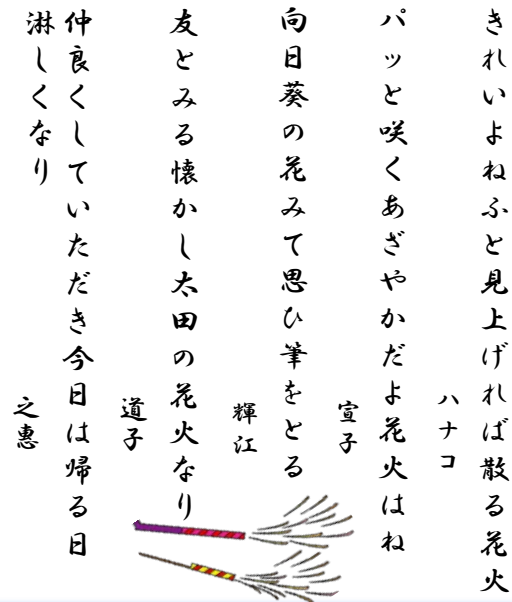 きれいよねふと見上げれば散る花火
ハナコ
パッと咲くあざやかだよ花火はね
宣子
向日葵の花みて思ひ筆をとる
輝江
友とみる懐かし太田の花火なり
道子
仲良くしていただき今日は帰る日
淋しくなり
之惠